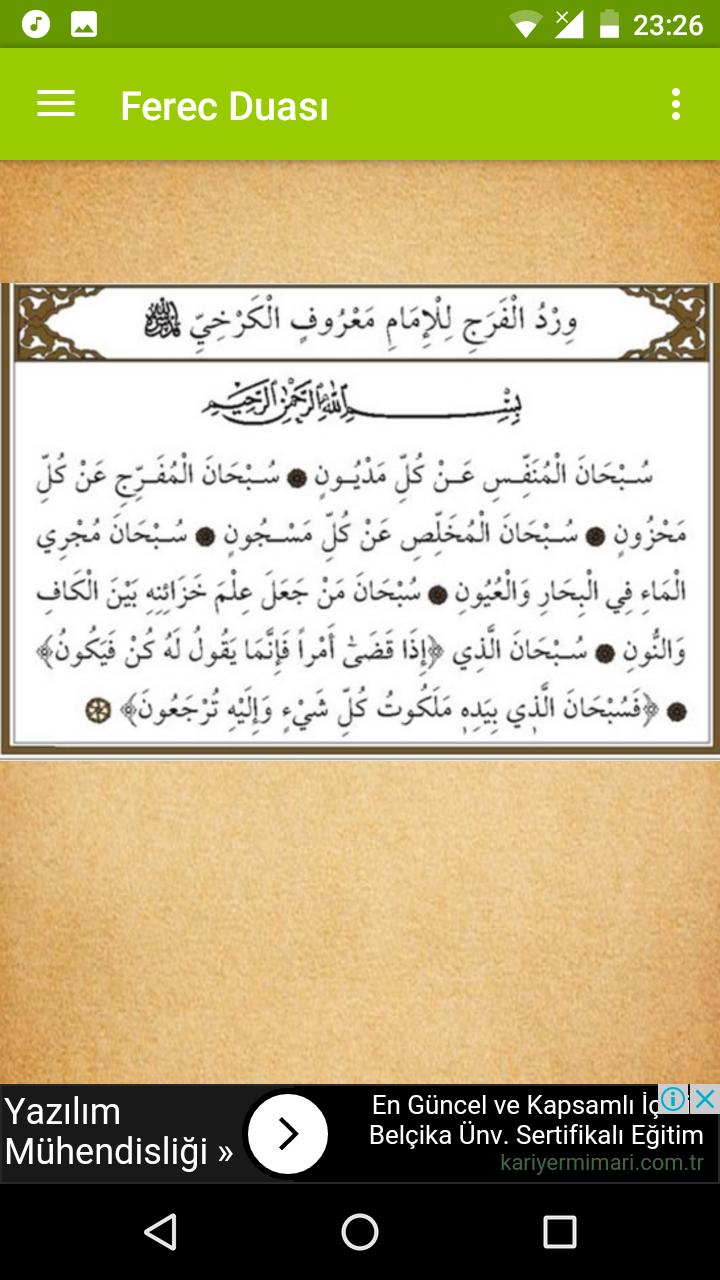 23:26
Ferec Duası
وِرْدُ الْفَرَجِ لِلْإِمَامِ مَعْرُوفٍ الْكَرْخِيِّ
بِسْمِ اللهِ الرَّحْمٰنِ الرَّحِيمِ
سُبْحَانَ الْمُنَفِّسِ عَنْ كُلِّ مَدْيُونٍ سُبْحَانَ الْمُفَرِّجِ عَنْ كُلِّ
مَحْزُونٍ سُبْحَانَ الْمُخَلِّصِ عَنْ كُلِّ مَسْجُونٍ سُبْحَانَ مُجْرِي
الْمَاءِ فِي الْبِحَارِ وَالْعُيُونِ سُبْحَانَ مَنْ جَعَلَ عِلْمَ خَزَائِنِهِ بَيْنَ الْكَافِ
وَالنُّونِ سُبْحَانَ الَّذِي ﴿إِذَا قَضَىٰ أَمْراً فَإِنَّمَا يَقُولُ لَهُ كُنْ فَيَكُونُ﴾
﴿فَسُبْحَانَ الَّذِي بِيَدِهِ مَلَكُوتُ كُلِّ شَيْءٍ وَإِلَيْهِ تُرْجَعُونَ﴾
Yazılım
Mühendisliği »
En Güncel ve Kapsamlı
Belçika Ünv. Sertifikalı Eğitim
kariyermimari.com.tr